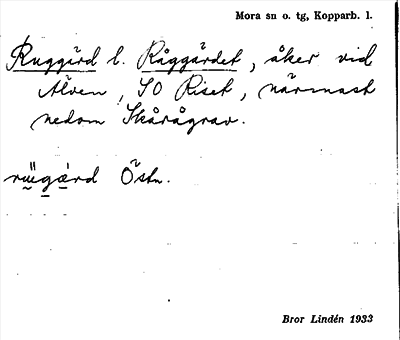 Mora sn o. tg, Kopparb. l.
Ruggärd l. Råggärdet, åker vid
Älven, SO Riset, närmast
nedom Skårågrav.
Östn.
Bror Lindén 1933